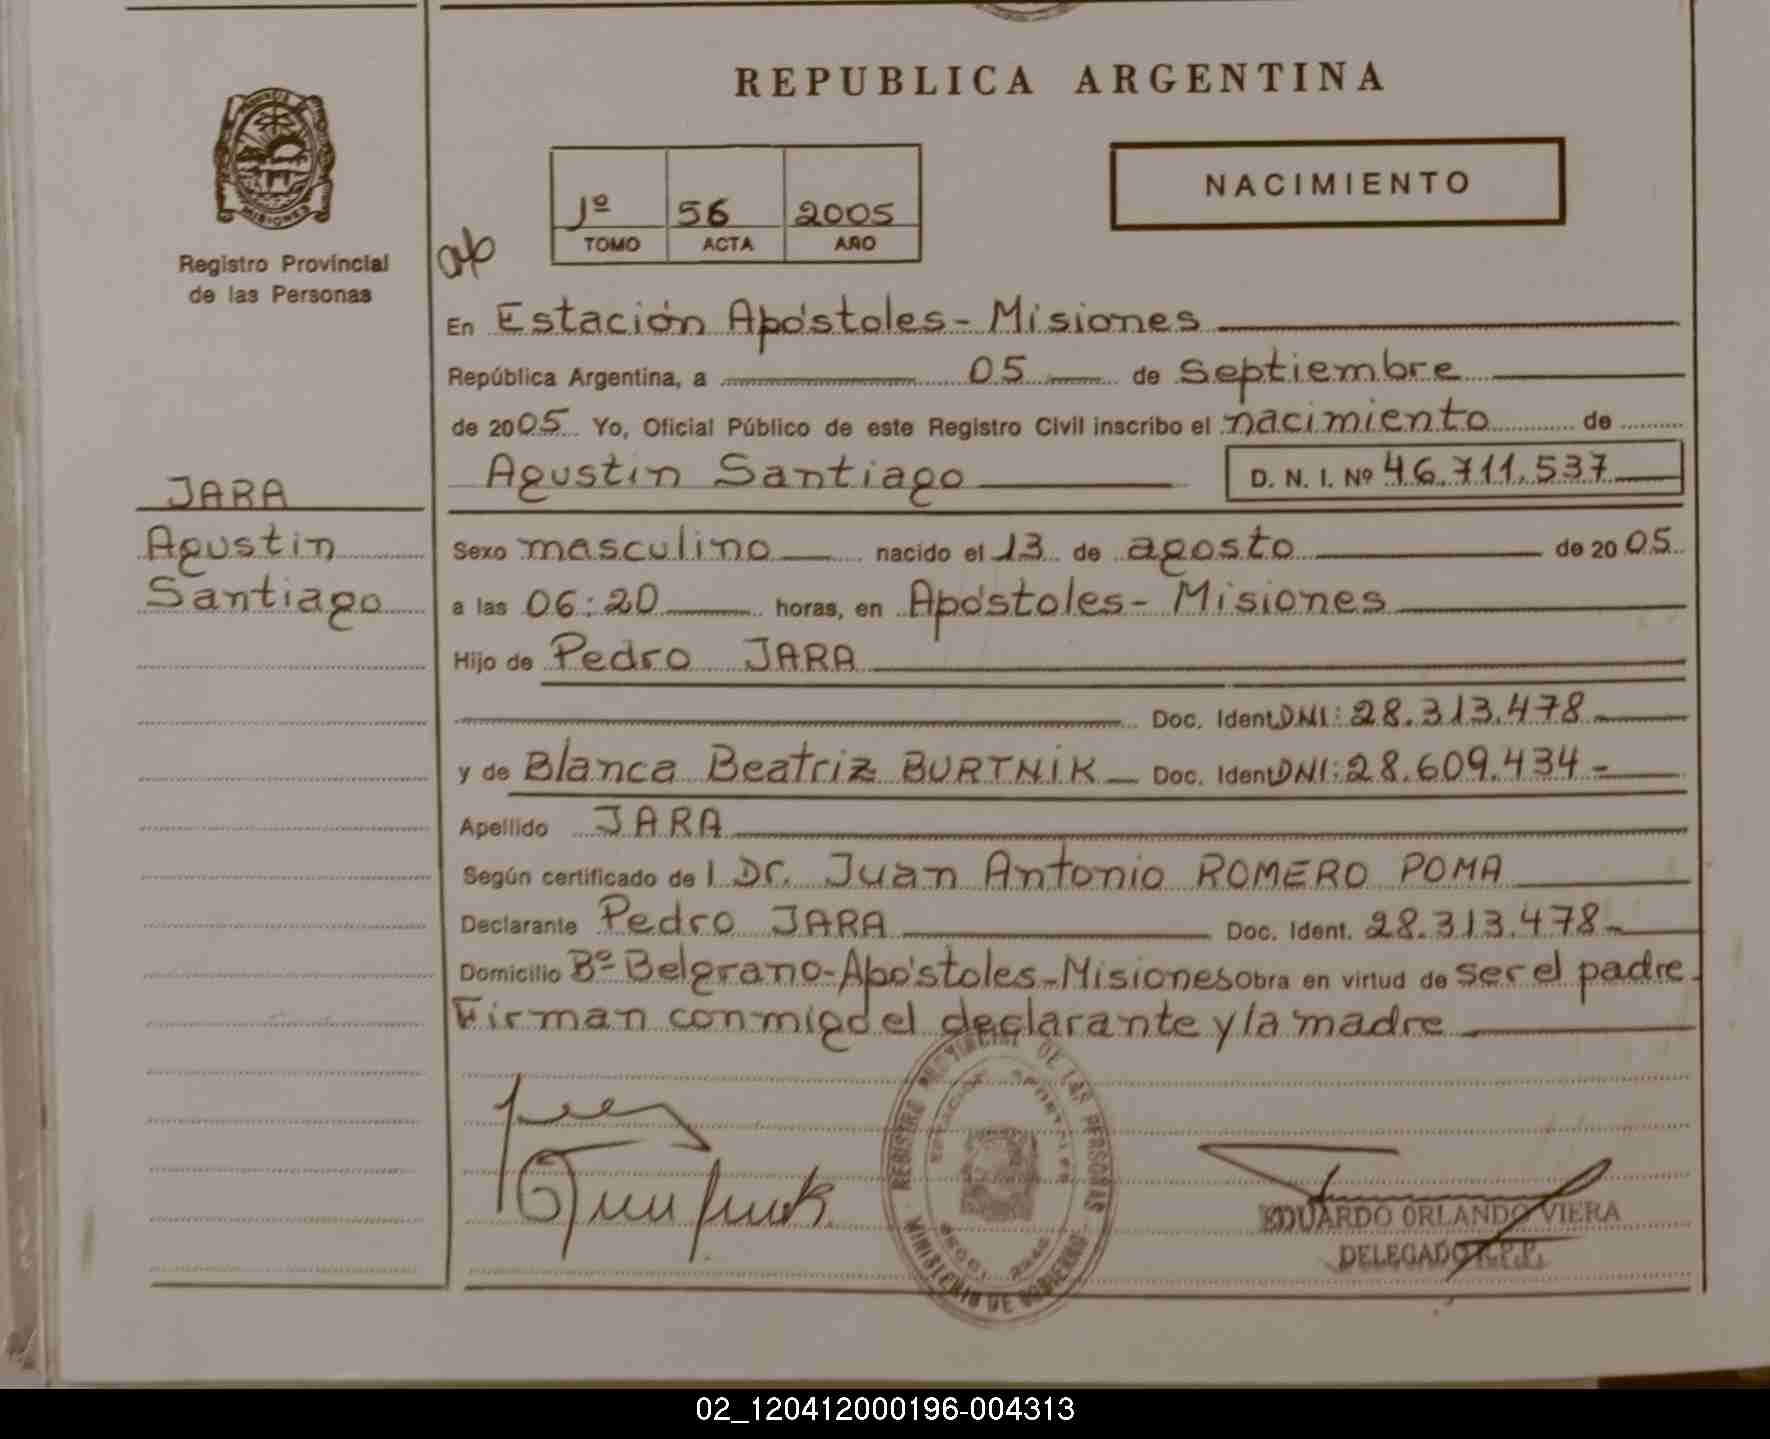 REPUBLICA ARGENTINA
MISIONES
Registro Provincial
de las Personas
NACIMIENTO
1º 56 2005
TOMO ACTA AÑO
En Estación Apóstoles - Misiones
República Argentina, a 05 de septiembre
de 2005 Yo, Oficial Público de este Registro Civil inscribo el nacimiento de
Agustin Santiago D. N. I. Nº 46.711.537
JARA
Agustin
Santiago
Sexo masculino nacido el 13 de agosto de 2005
a las 06:20 horas, en Apóstoles - Misiones
Hijo de Pedro JARA
Doc. Ident DNI: 28.313.478
y de Blanca Beatriz BURTNIK Doc. Ident DNI: 28.609.434 -
Apellido JARA
Según certificado de l Dr. Juan Antonio ROMERO POMA
Declarante Pedro JARA Doc. Ident. 28.313.478 -
Domicilio Bº Belgrano - Apóstoles - Misiones Obra en virtud de ser el padre.
Firman conmigo el declarante y la madre
REGISTRO PROVINCIAL DE LAS PERSONAS
MINISTERIO DE GOBIERNO
EDUARDO ORLANDO VIERA
DELEGADO R.P.P.
02_120412000196-004313